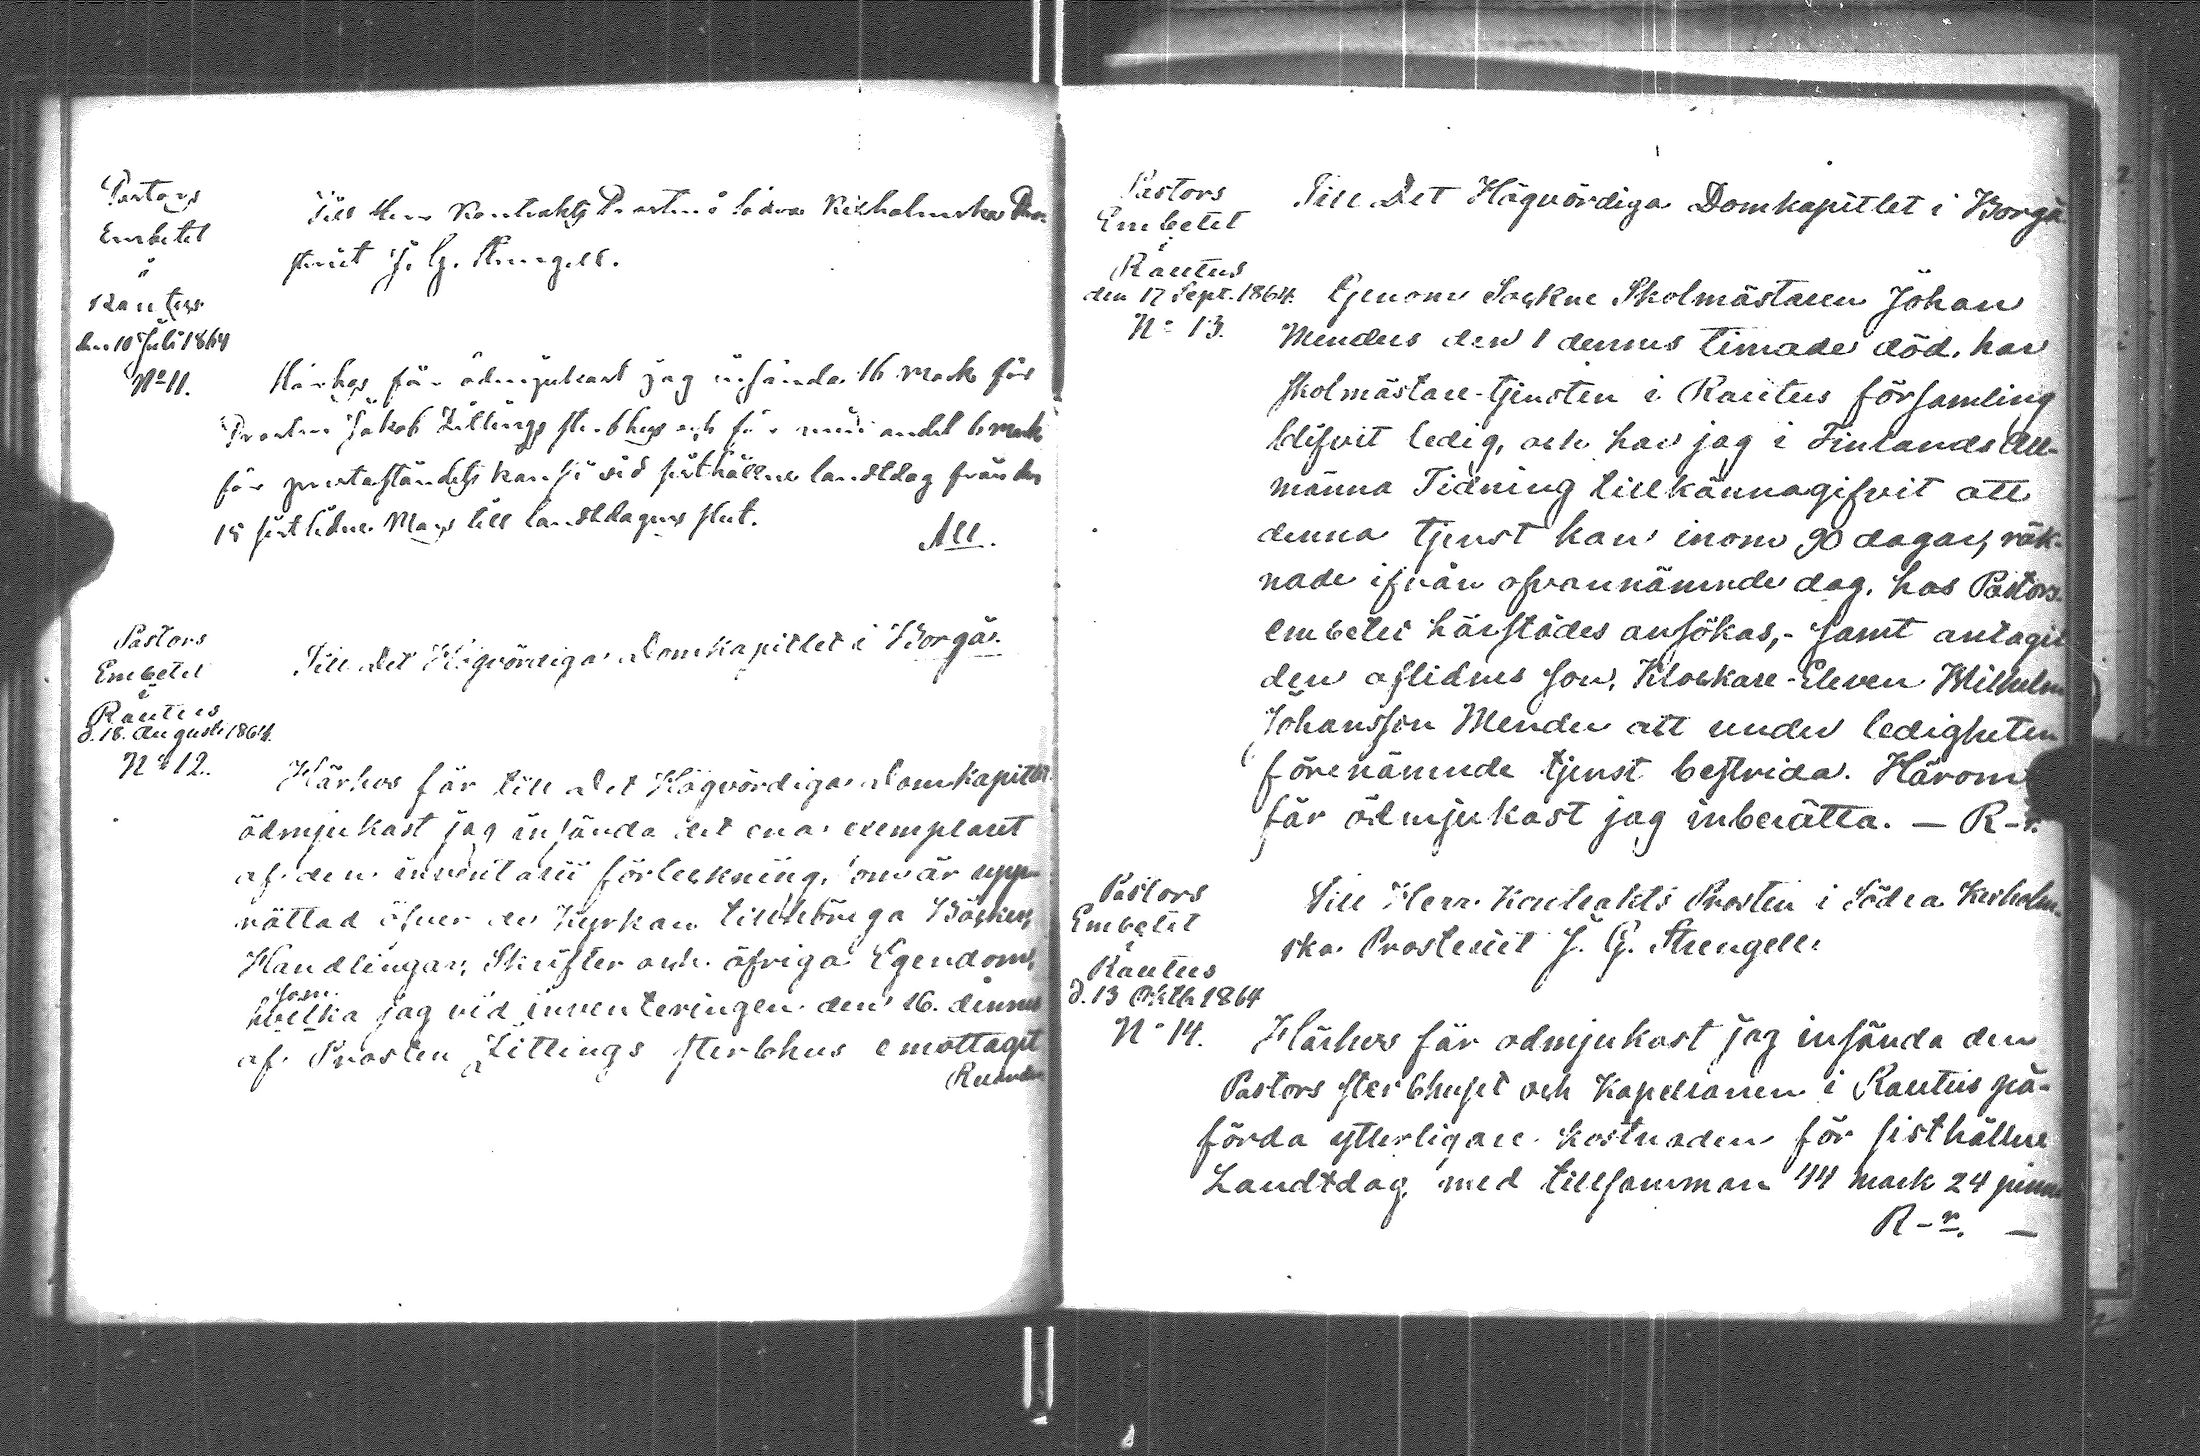 Pastors
Embetet
i
Rautus
den 10 Juli 1864
No 11.
Till Herr Kontrakts Prosten i Södra Kexholmska Pro-
steriet J. G. Strengell.
Härhos får ödmjukast jag insända 16 mark för
Prosten Jakob Zittings sterbhus och för min andel 6 mark
för presteståndets kansli vid sisthållne landtdag från den
15 sistlidne Mars till landtdagens slut.
All.
Pastors
Embetet
i
Rautus
d. 18. Augusti 1864.
No 12.
Till Det Högvördiga Domkapitlet i Borgå.
Härhos får till Det Högvördiga Domkapitlet
ödmjukast jag insända det ena exemplaret
af den inventarii förteckning, som är upp-
rättad öfver de Kyrkan tillhöriga Böcker,
Handlingar, Skrifter och öfriga Egendom,
som
hvilka jag vid inventeringen den 16. dennes
af Prosten Zittings sterbhus emottagit
Pastors
Embetet
i
Rautus
den 17 Sept. 1864.
No 13.
Till Det Högvördiga Domkapitlet i Borgå
Genom Sockne Skolmästaren Johan
Menders den 1 dennes timade död, har
skolmästare-tjensten i Rautus församling
blifvit ledig, och har jag i Finlands All-
männa Tidning tillkännagifvit att
denna tjenst kan inom 90 dagar, räk-
nade ifrån ofvannämnde dag, hos Pastors
embetet härstädes ansökas,- samt antagit
den aflidnes son, Klockare-Eleven Wilhelm
Johansson Mender att under ledigheten
förenämnde tjenst bestrida. Härom
får ödmjukast jag inberätta. — R-r.
Pastors
Embetet
i
Rautus
d. 13 Oktb 1864
No 14.
Till Herr Kontrakts Prosten i Södra Kexholm-
ska Prosteriet J. G. Strengell.
Härhos får ödmjukast jag insända den
Pastors sterbhuset och Kapellanen i Rautus på-
förda ytterligare kostnaden för sisthållne
Landtdag med tillsamman 44 mark 24 penni
R-r. —